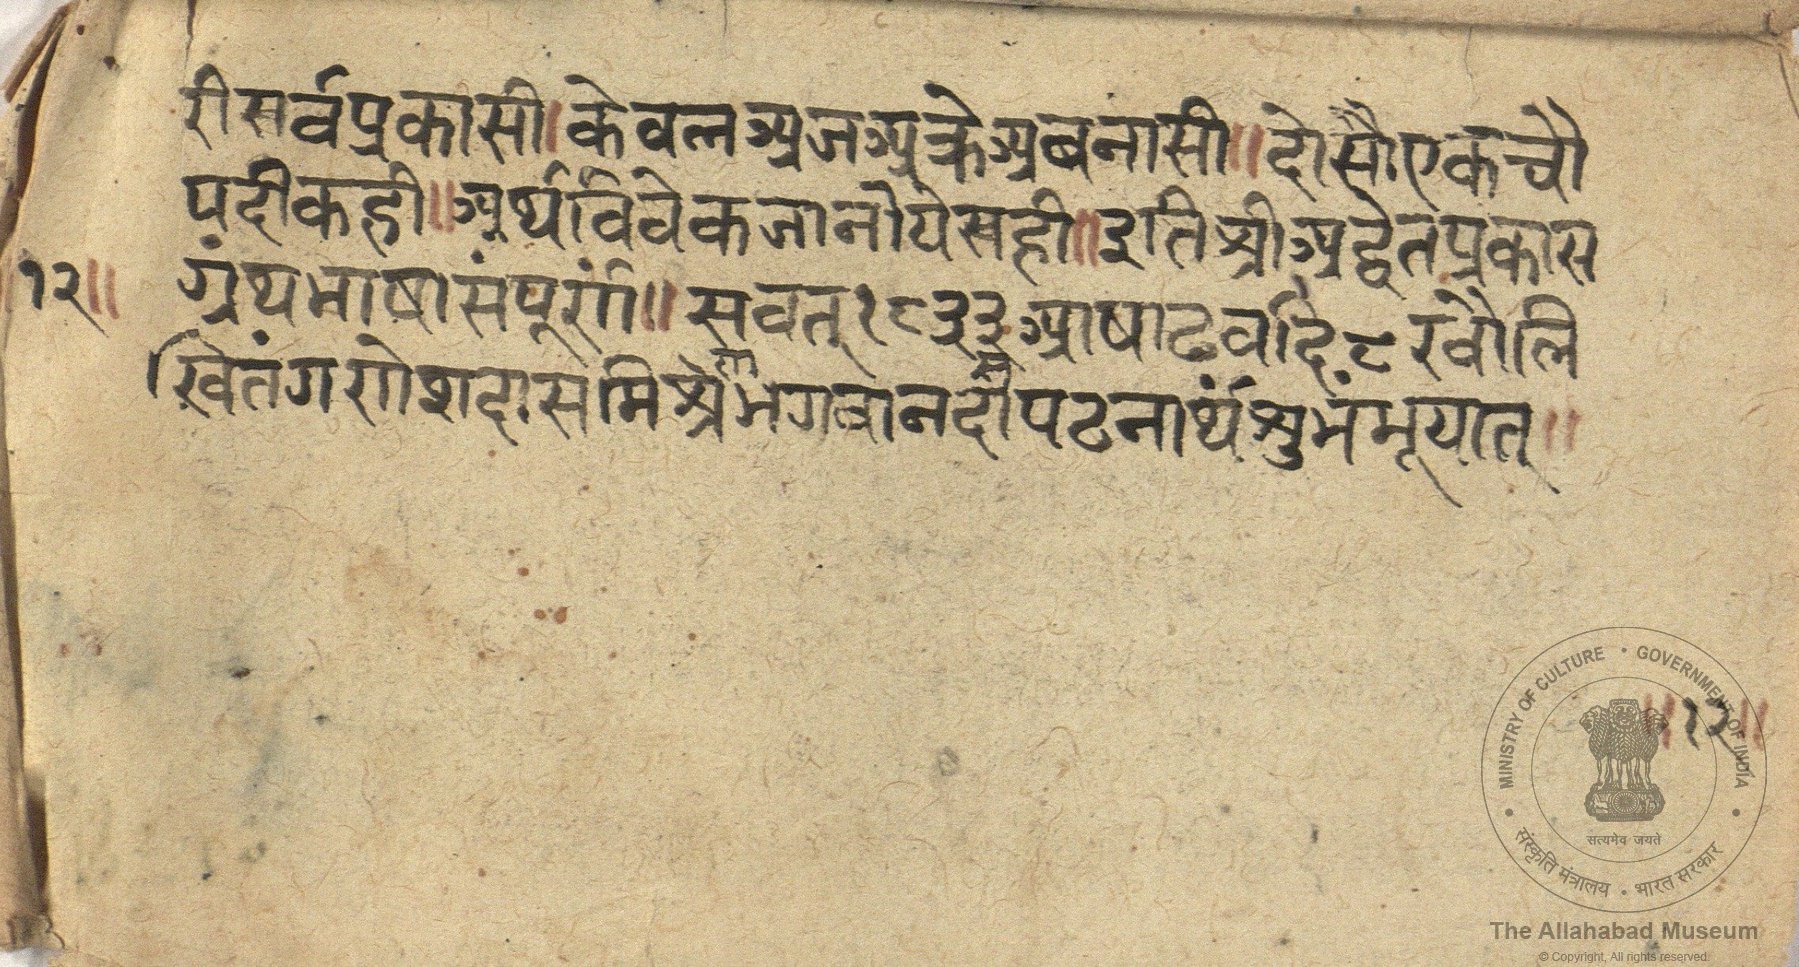 री सर्वप्रकासी। केवल अज अक्रे अबनासी॥ दो सौ एक चौ
पदी कही॥ अर्थ विवेक जानोये सही॥ इति श्री अद्वैतप्रकास
१२॥ ग्रंथ भाषा संपूर्णं॥ सवत् १८३३ आषाढ वदि ८ रवौ लि
खितं गणेशदास मिश्रेण भगवानदास पठनार्थं श्रुभं भूयात्॥
॥१२॥
MINISTRY OF CULTURE • GOVERNMENT OF INDIA
सत्यमेव जयते
संस्कृति मंत्रालय • भारत सरकार
The Allahabad Museum
© Copyright, All rights reserved.